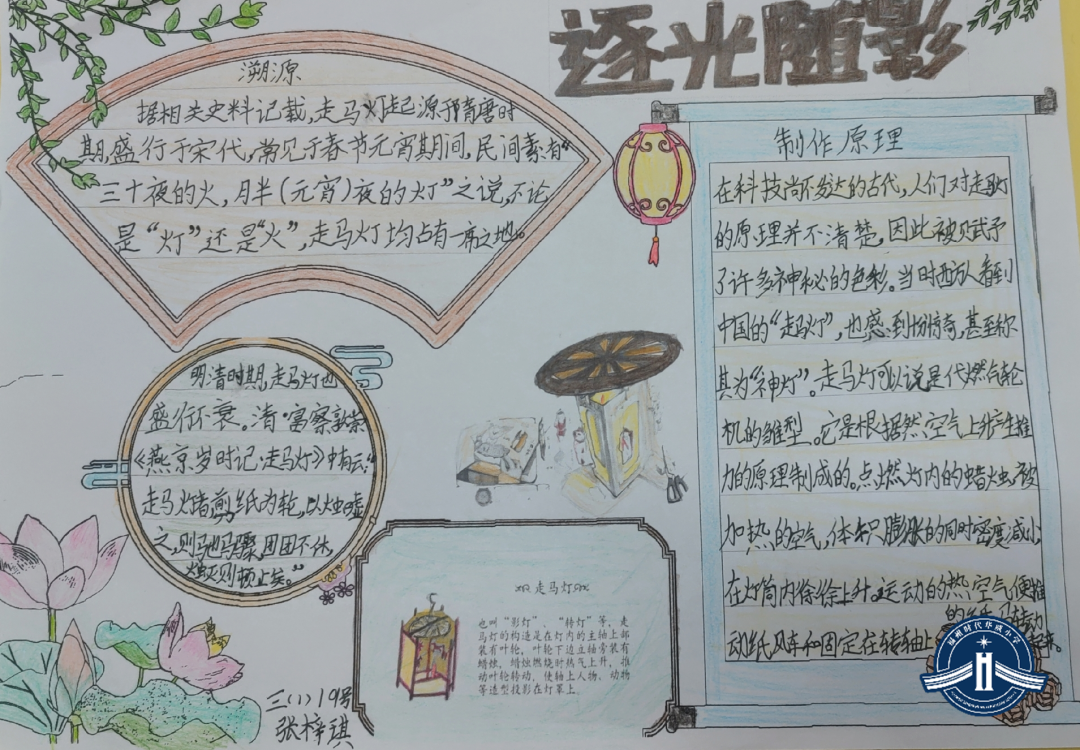 逐光随影
溯源
据相关史料记载,走马灯起源于隋唐时
期,盛行于宋代,常见于春节元宵期间,民间素有“
三十夜的火,月半(元宵)夜的灯”之说,不论
是“灯”还是“火”,走马灯均占有一席之地。
制作原理
在科技尚不发达的古代,人们对走马灯
的原理并不清楚,因此被赋予
了许多神秘的色彩。当时西方人看到
中国的“走马灯”,也感到惊奇,甚至称
其为“神灯”。走马灯可以说是代燃气轮
机的雏型。它是根据热空气上升产生推
力的原理制成的。点燃灯内的蜡烛,被
加热的空气,体积膨胀的同时密度减小,
在灯筒内徐徐上升。运动的热空气便推
动纸风车和固定在转轴上
的纸马转动
起来。
明清时期,走马灯也
盛行不衰。清·富察敦崇
《燕京岁时记·走马灯》中有云:“
走马灯者,剪纸为轮,以烛嘘
之,则驰马骤,团团不休,
烛灭则顿止矣。”
走马灯
也叫“影灯”、“转灯”等、走
马灯的构造是在灯内的主轴上部
装有叶轮,叶轮下边立轴旁装有
蜡烛,蜡烛燃烧时热气上升,推
动叶轮转动,使轴上人物、动物
等造型投影在灯罩上.
三(1)19号
张梓琪
福州时代华威小学